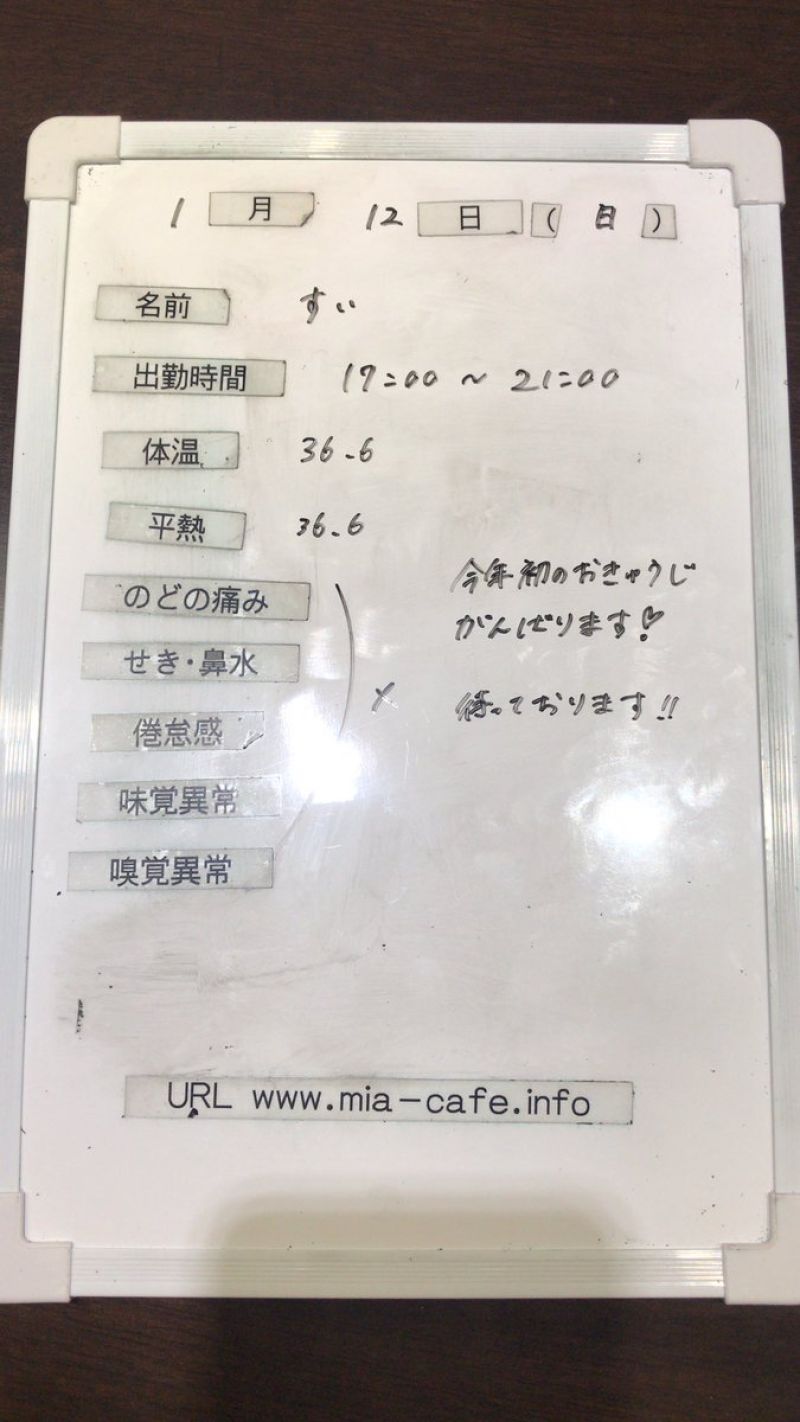 1月 12日(日)
名前 すい
出勤時間 17:00 ~ 21:00
体温 36.6
平熱 36.6
のどの痛み
せき・鼻水
倦怠感
味覚異常
嗅覚異常
×
今年初のおきゅうじ
がんばります!
待っております!!
URL www.mia-cafe.info